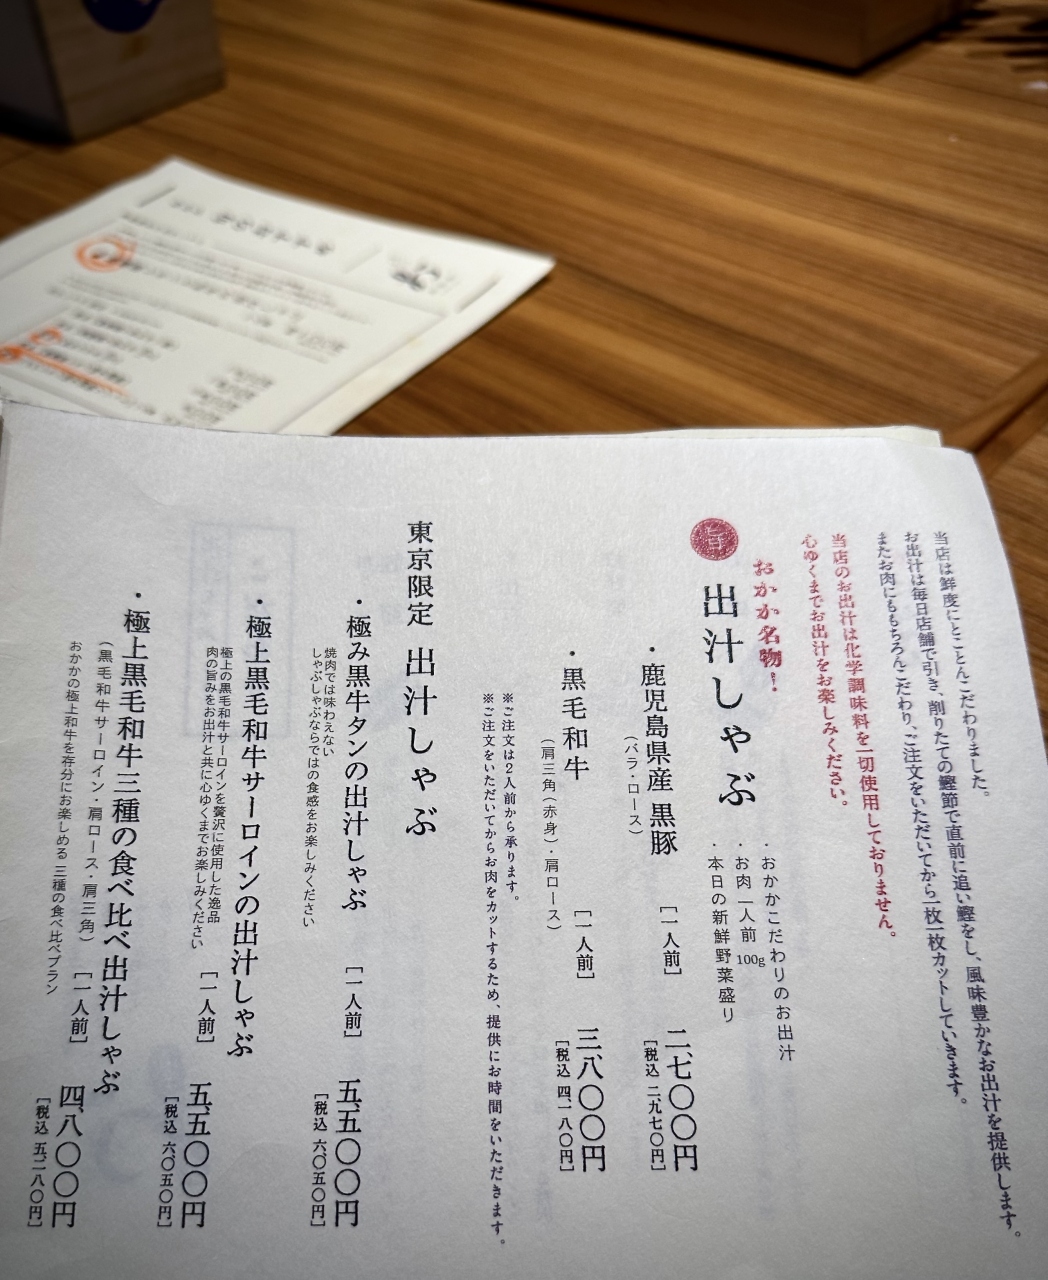 当店は鮮度にとことんこだわりました。
お出汁は毎日店舗で引き、削りたての鰹節で直前に追い鰹をし、風味豊かなお出汁を提供します。
またお肉にももちろんこだわり、ご注文をいただいてから一枚一枚カットしていきます。
当店のお出汁は化学調味料を一切使用しておりません。
心ゆくまでお出汁をお楽しみください。
おかか名物！
旨
出汁しゃぶ
・おかかこだわりのお出汁
・お肉一人前 100g
・本日の新鮮野菜盛り
・鹿児島県産 黒豚
［一人前］
二、七〇〇円
（バラ・ロース）
［税込 二、九七〇円］
・黒毛和牛
［一人前］
三、八〇〇円
（肩三角（赤身）・肩ロース）
［税込 四、一八〇円］
※ご注文は２人前から承ります。
※ご注文をいただいてからお肉をカットするため、提供にお時間をいただきます。
東京限定 出汁しゃぶ
・極み黒牛タンの出汁しゃぶ
［一人前］
五、五〇〇円
焼肉では味わえない
しゃぶしゃぶならではの食感をお楽しみください
［税込 六、〇五〇円］
・極上黒毛和牛サーロインの出汁しゃぶ
［一人前］
五、五〇〇円
極上の黒毛和牛サーロインを贅沢に使用した逸品
肉の旨みをお出汁と共に心ゆくまでお楽しみください
［税込 六、〇五〇円］
・極上黒毛和牛三種の食べ比べ出汁しゃぶ
（黒毛和牛サーロイン・肩ロース・肩三角）
［一人前］
四、八〇〇円
おかかの極上和牛を存分にお楽しめる 三種の食べ比べプラン
［税込 五、二八〇円］